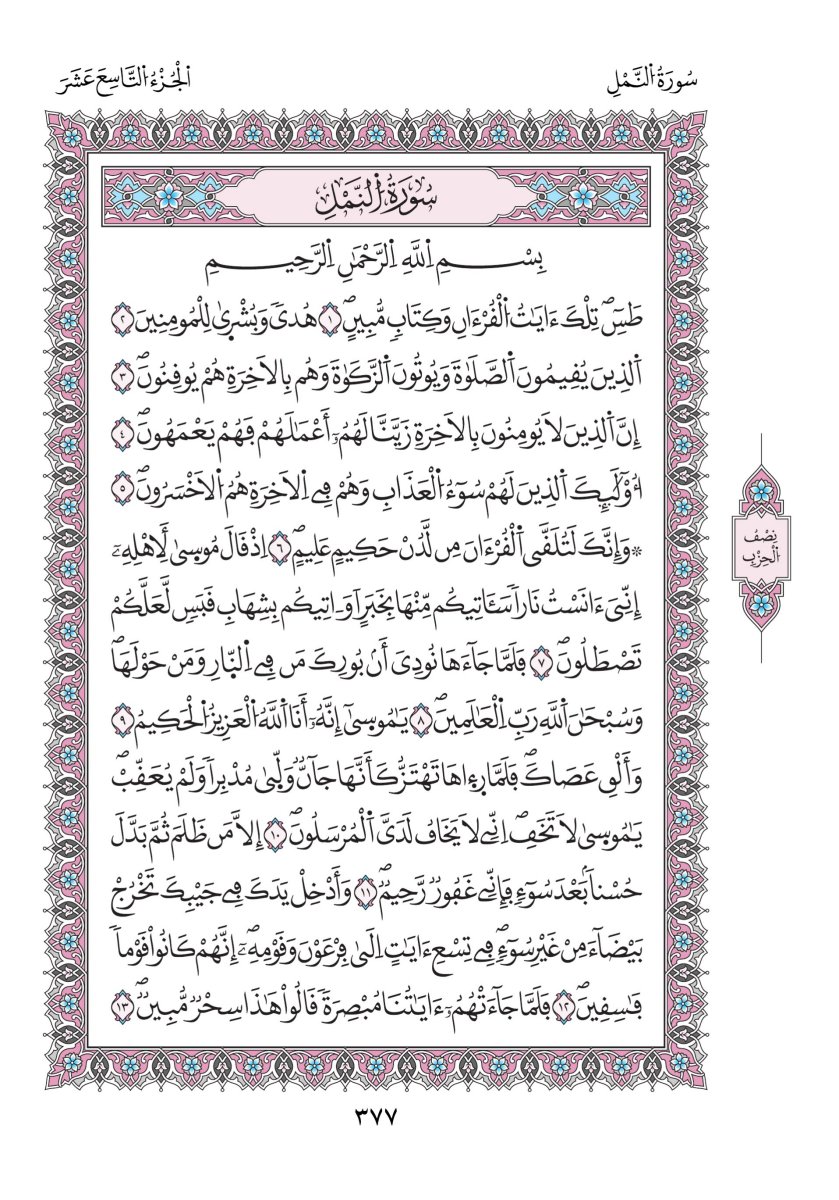 سُورَةُ النَّمْلِ
اَلْجُزْءُ التَّاسِعَ عَشَرَ
سُورَةُ النَّمْلِ
بِسْمِ اِللَّهِ اِلرَّحْمَٰنِ اِلرَّحِيمِ
طَسِٓۖ تِلْكَ ءَايَٰتُ اُ۬لْقُرْءَانِ وَكِتَابٖ مُّبِينٍۖ ١ هُدىٗ وَبُشْر۪يٰ لِلْمُومِنِينَ ٢
اَ۬لذِينَ يُقِيمُونَ اَ۬لصَّلَوٰةَ وَيُوتُونَ اَ۬لزَّكَوٰةَ وَهُم بِالَاخِرَةِ هُمْ يُوقِنُونَۖ ٣
إِنَّ اَ۬لذِينَ لَا يُومِنُونَ بِالَاخِرَةِ زَيَّنَّا لَهُمُۥٓ أَعْمَٰلَهُمْ فَهُمْ يَعْمَهُونَۖ ٤
أُوْلَٰٓئِكَ اَ۬لذِينَ لَهُمْ سُوٓءُ اُ۬لْعَذَابِ وَهُمْ فِے اِ۬لَاخِرَةِ هُمُ اُ۬لَاخْسَرُونَۖ ٥
۞وَإِنَّكَ لَتُلَقَّي اَ۬لْقُرْءَانَ مِن لَّدُنْ حَكِيمٍ عَلِيمٍۖ ٦ اِذْ قَالَ مُوس۪يٰ لِأَهْلِهِۦٓ
إِنِّيَ ءَانَسْتُ نَاراٗ سَـَٔاتِيكُم مِّنْهَا بِخَبَرٍ اَوَ اٰتِيكُم بِشِهَابِ قَبَسٖ لَّعَلَّكُمْ
تَصْطَلُونَۖ ٧ فَلَمَّا جَآءَهَا نُودِيَ أَنۢ بُورِكَ مَن فِے اِ۬لنّ۪ارِ وَمَنْ حَوْلَهَاۖ
وَسُبْحَٰنَ اَ۬للَّهِ رَبِّ اِ۬لْعَٰلَمِينَۖ ٨ يَٰمُوس۪يٰٓ إِنَّهُۥٓ أَنَا اَ۬للَّهُ اُ۬لْعَزِيزُ اُ۬لْحَكِيمُ ٩
وَأَلْقِ عَصَاكَۖ فَلَمَّا ر۪ء۪اهَا تَهْتَزُّ كَأَنَّهَا جَآنّٞ وَلّ۪يٰ مُدْبِراٗ وَلَمْ يُعَقِّبْۖ
يَٰمُوس۪يٰ لَا تَخَفِ اِنِّے لَا يَخَافُ لَدَيَّ اَ۬لْمُرْسَلُونَۖ ١٠ إِلَّا مَن ظَلَمَ ثُمَّ بَدَّلَ
حُسْناَۢ بَعْدَ سُوٓءٖ فَإِنِّے غَفُورٞ رَّحِيمٞۖ ١١ وَأَدْخِلْ يَدَكَ فِے جَيْبِكَ تَخْرُجْ
بَيْضَآءَ مِنْ غَيْرِ سُوٓءٖۖ فِے تِسْعِ ءَايَٰتٍ اِلَيٰ فِرْعَوْنَ وَقَوْمِهِۦٓۖ إِنَّهُمْ كَانُواْ قَوْماٗ
فَٰسِقِينَۖ ١٢ فَلَمَّا جَآءَتْهُمُۥٓ ءَايَٰتُنَا مُبْصِرَةٗ قَالُواْ هَٰذَا سِحْرٞ مُّبِينٞۖ ١٣
نِصْفُ
اَلْحِزْبِ
٣٧٧